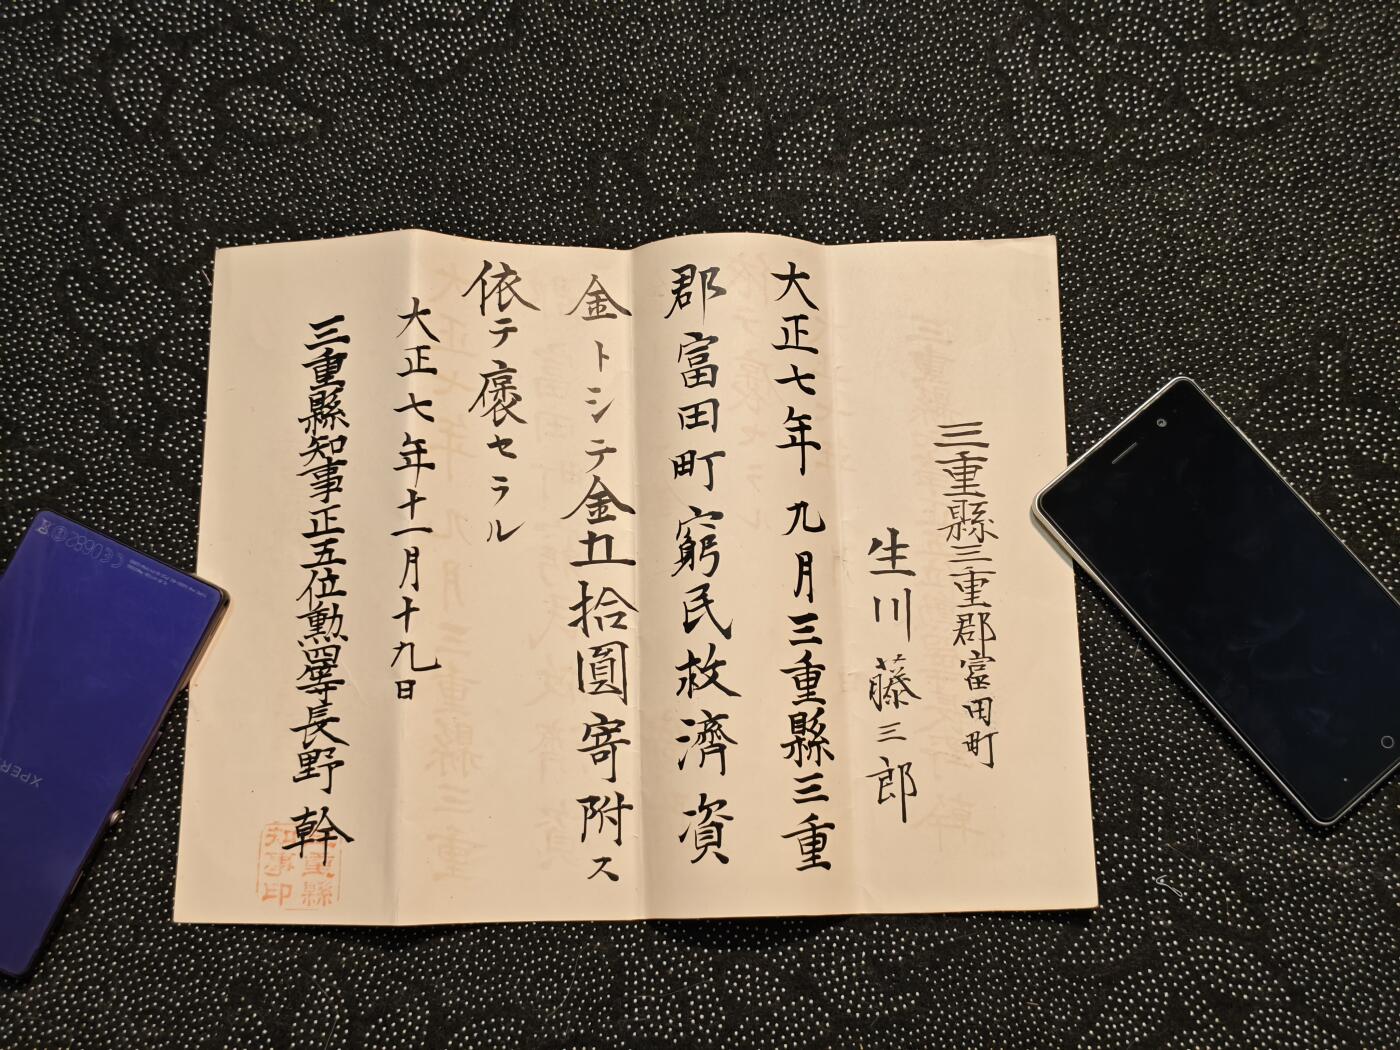 三重縣三重郡富田町
生川藤三郎
大正七年九月三重縣三重
郡富田町窮民救濟資
金トシテ金五拾圓寄附ス
依テ褒セラル
大正七年十一月十九日
三重縣知事正五位勲四等長野幹
三重縣
知事印
XPER